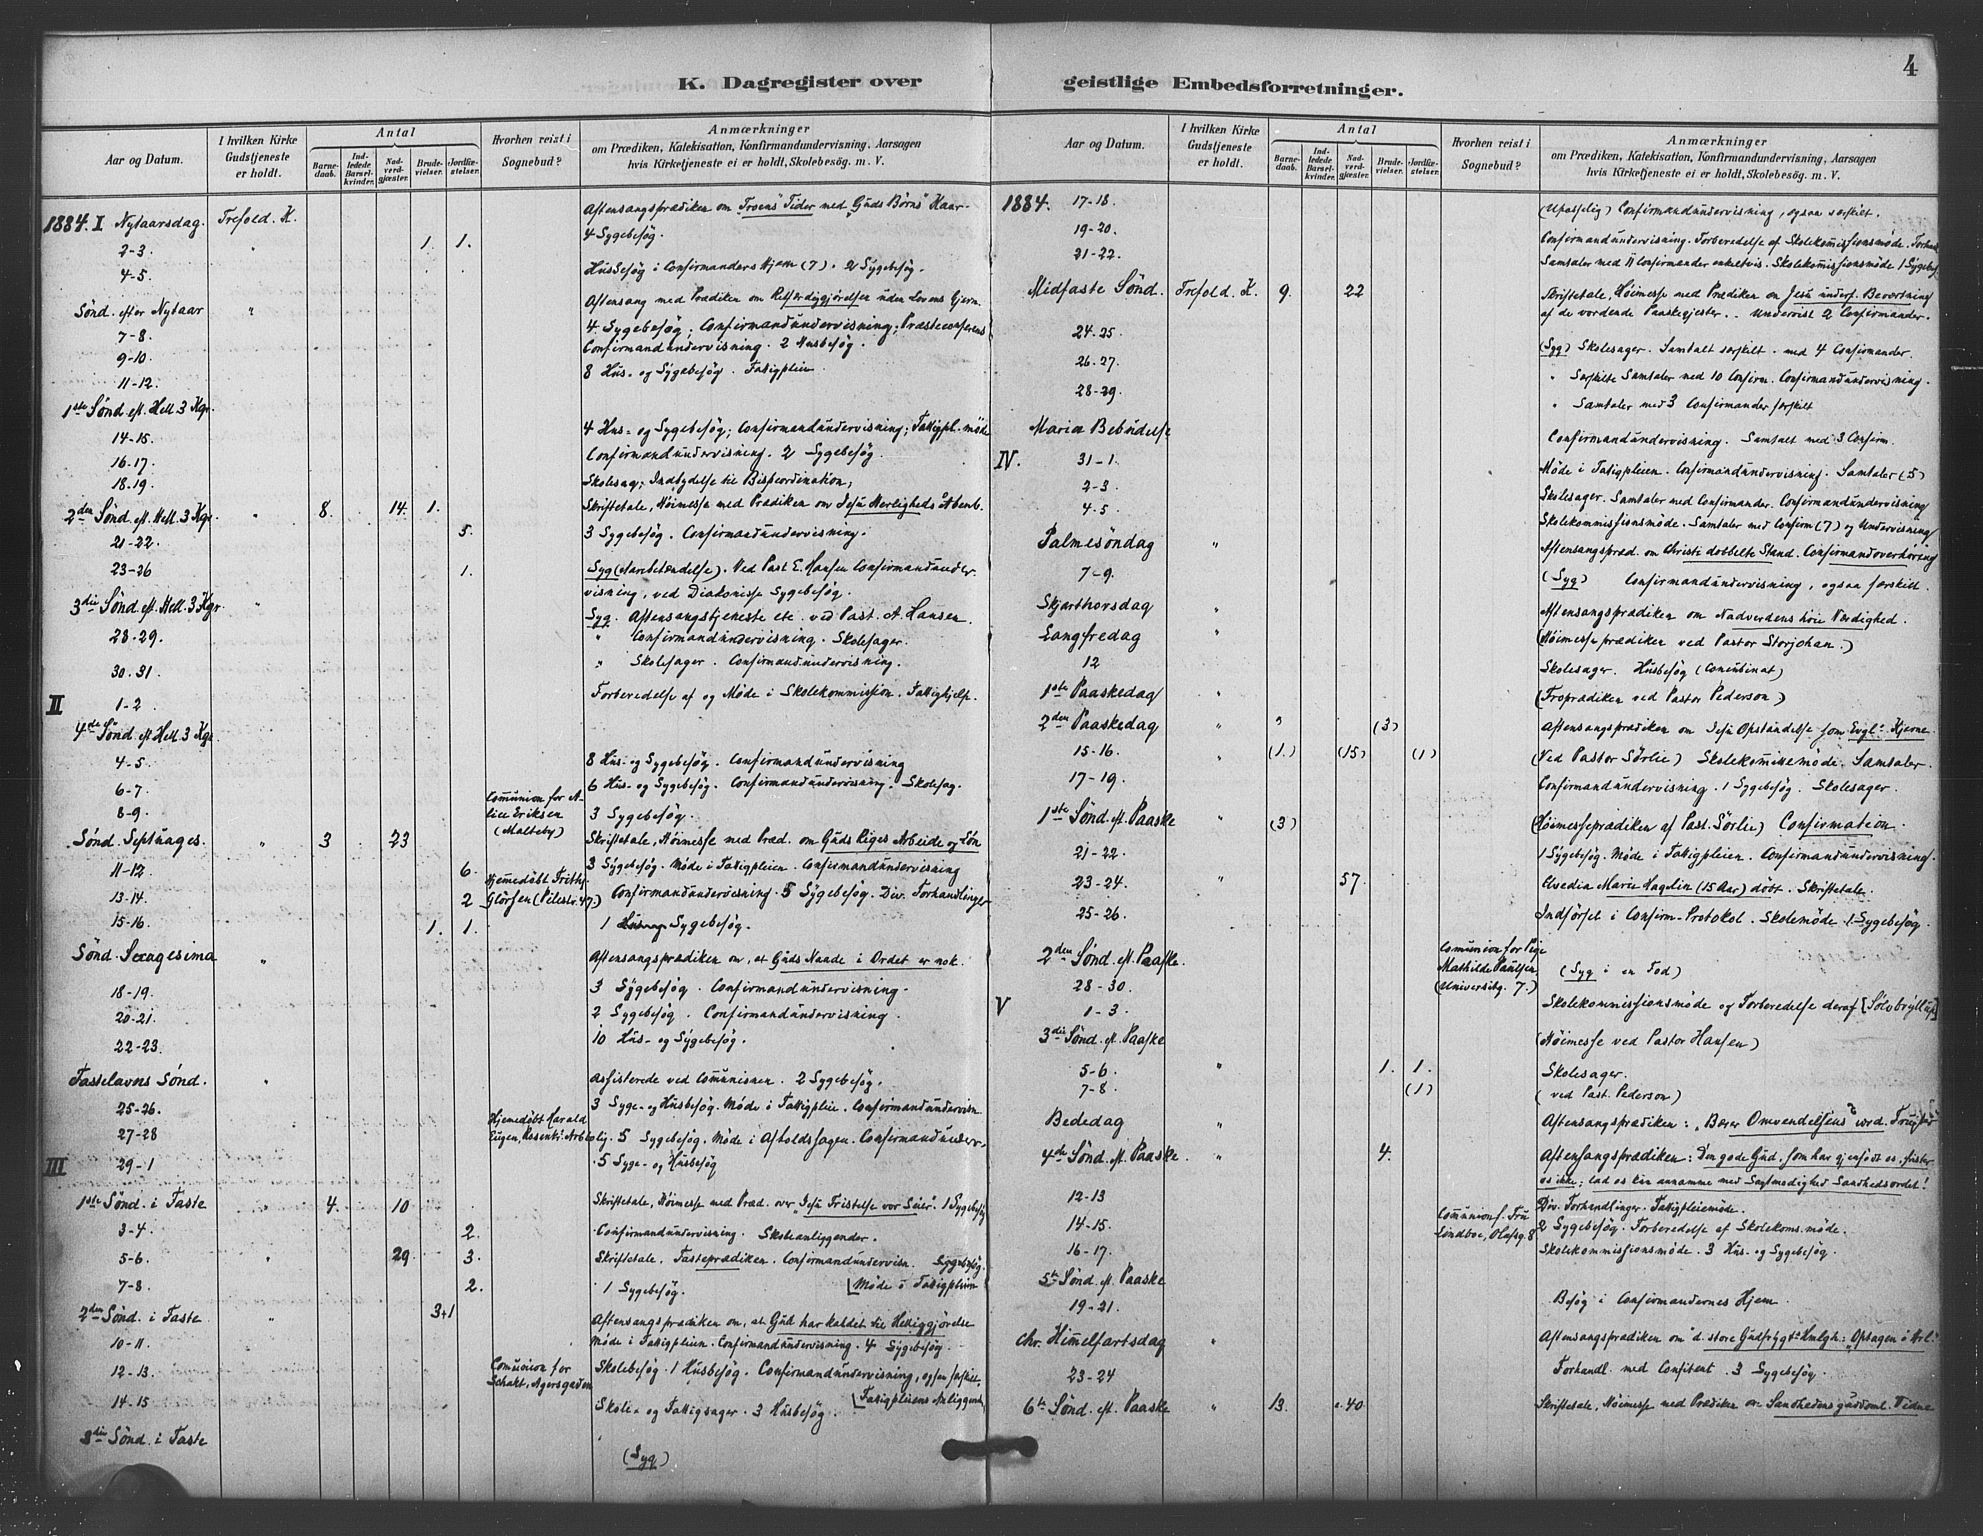 4
K. Dagregister over geistlige Embedsforretninger.
Aar og Datum. I hvilken Kirke Gudstjeneste er holdt. Antal Barnedaab. Indledede Barselkvinder. Nadverdgjæster. Brudevielser. Jordfæstelser. Hvorhen reist i Sognebud? Anmærkninger
om Prædiken, Katekisation, Konfirmandundervisning, Aarsagen
hvis Kirketjeneste ei er holdt, Skolebesög. m. V.
1884. I Nytaarsdag. Trefold. K. Aftensangsprædiken om Troens Tider med "Guds Børns" Kaar.
2-3. " 1. 1. 4 Sygebesøg.
4-5. Husbesøg i Confirmanders Hjem (7). 2 Sygebesøg.
Sønd. efter Nytaar " Aftensang med Prædiken om Retfærdiggjørelsen uden Lovens Gjern.
7-8. 4 Sygebesøg; Confirmandundervisning; Præsteconferens
9-10. Confirmandundervisning. 2 Husbesøg.
11-12. 8 Hus- og Sygebesøg. Fattigpleien
1ste Sønd. ef. Hell. 3 Kgr.
14-15. 4 Hus- og Sygebesøg; Confirmandundervisning; Fattigpl. møde
16-17. Confirmandundervisning. 2 Sygebesøg.
18-19. Skolesag; Indbydelse til Bispeordination;
2den Sønd. ef. Hell. 3 Kgr. " 8. 14. 1. Skriftetale, Høimesse med Prædiken om Jesu Herligheds Aabenb.
21-22. 5. 3 Sygebesøg. Confirmandundervisning.
23-26 1. Syg. Ved Past. E. Hansen Confirmandunder-
visning, ved Diakonisse Sygebesøg.
3die Sønd. ef. Hell. 3 Kgr. " Syg. Aftensangstjeneste etc. ved Past. A. Hansen.
28-29. " Confirmandundervisning. Skolesager.
30-31. " Skolesager. Confirmandundervisning.
II 1-2. Forberedelse af og Møde i Skolekommission. Fattighjelp.
4de Sønd. ef. Hell. 3 Kgr.
4-5. 8 Hus- og Sygebesøg. Confirmandundervisning
6-7. 6 Hus- og Sygebesøg. Confirmandundervisning. Skolesag.
8-9. Comunion for A-
lice Eriksen
(Malteby) 3 Sygebesøg.
Sønd. Septuages. " 3 23 Skriftetale, Høimesse med Præd. om Guds Riges Arbeide og Løn
11-12. 6. 3 Sygebesøg. Møde i Fattigpleien. Confirmandundervisning
13-14. 2 Hjemedøbt Frithj.
Glörsen (Pilestr. 47.) Confirmandundervisning. 5 Sygebesøg. Div. Forhandlinger
15-16. 1. 1. 1 Sygebesøg.
Sønd. Sexagesima " Aftensangsprædiken om, at Guds Naade i Ordet er nok.
18-19. 3 Sygebesøg. Confirmandundervisning.
20-21. 2 Sygebesøg. Confirmandundervisning.
22-23. 10 Hus- og Sygebesøg.
Fastelavns Sønd. " Assisterede ved Comunionen. 2 Sygebesøg.
25-26. 3 Syge- og Husbesøg. Møde i Fattigpleie. Confirmandundervisn.
27-28 Hjemedøbt Harald
Eugen, 5 Sygebesøg. Møde i Afholdssagen. Confirmandunderv.
III 29-1 5 Syge- og Husbesøg
1ste Sønd. i Faste " 4. 10 Skriftetale, Høimesse med Præd. over "Jesu Fristelse vor Seier". 1 Sygebesøg
3-4. 2. Confirmandundervisning. Skoleanliggender.
5-6. " 29. 3. Skriftetale. Fasteprædiken. Confirmandundervisn. Sygebesøg.
7-8. 2. 1 Sygebesøg. Møde i Fattigpleien
2den Sønd. i Faste " 3+1 Aftensangsprædiken om, at Gud har kaldet til Helliggjørelse
10-11. Møde i Fattigpleien. Confirmandundervisning. 4 Sygebesøg.
12-13. Comunion for
Schakt, Agersgaden Skolebesøg. 1 Husbesøg. Confirmandundervisning, ogsaa særskilt,
14-15 Skole- og Fattigsager. 3 Husbesøg. Fattigpleiens Anliggende
3die Sønd. i Faste (Syg)
Aar og Datum. I hvilken Kirke Gudstjeneste er holdt. Antal Barnedaab. Indledede Barselkvinder. Nadverdgjæster. Brudevielser. Jordfæstelser. Hvorhen reist i Sognebud? Anmærkninger
om Prædiken, Katekisation, Konfirmandundervisning, Aarsagen
hvis Kirketjeneste ei er holdt, Skolebesög. m. V.
1884. 17-18. (Upasselig) Confirmandundervisning, ogsaa særskilt.
19-20. Confirmandundervisning. Forberedelse af Skolekommissionsmøde.
21-22. Samtaler med 11 Confirmander enkeltvis. Skolekommissionsmøde 1 Sygebes.
Midfaste Sønd. Trefold. K. 9. 22 Skriftetale, Høimesse med Prædiken om Jesu underf. Beværtning
af de vordende Paaskegjester. Undervist 2 Confirmander.
24-25 (Syg) Skolesager. Samtalt særskilt med 4 Confirmander.
26-27. " Særskilte Samtaler med 10 Confirm. Confirmandundervisning.
28-29. " Samtaler med 3 Confirmander særskilt
Mariæ Bebudelse Confirmandundervisning. Samtalt med 3 Confirm.
IV. 31-1. Møde i Fattigpleien. Confirmandundervisning. Samtaler (5)
2-3. Skolesager. Samtaler med Confirmander. Confirmandundervisning
4-5. Skolekommissionsmøde. Samtaler med Confirm (7) og Undervisning
Palmesöndag " Aftensangspræd. om Christi dobbelte Stand. Confirmandoverhøring
7-9. (Syg) Confirmandundervisning, ogsaa særskilt.
Skjærthorsdag " Aftensangsprædiken om Nadverdens høie Værdighed.
Langfredag " (Høimesseprædiken ved Pastor Storjohan.)
12 Skolesager. Husbesøg (Concubinat)
1ste Paaskedag " (Froprædiken ved Pastor Pederson)
2den Paaskedag " " (3) Aftensangsprædiken om Jesu Opstandelse som Evgl.s Kjerne.
15-16. " (1.) (15) (1) (Ved Pastor Sørlie) Skolekommissmøde. Samtaler.
17-19. Confirmandundervisning. 1 Sygebesøg. Skolesager.
1ste Sønd. ef. Paaske " (3) (Høimesseprædiken af Past. Sørlie) Confirmation.
21-22. 1 Sygebesøg. Møde i Fattigpleien. Confirmandundervisning.
23-24. " 57. Marie Hagelin (15 Aar) døbt. Skriftetale.
25-26. Indførsel i Confirm-Protokol. Skolemøde. 1 Sygebesøg.
2den Sønd. ef. Paaske. Comunion for Pige
Mathilde Paulsen
(Universitg. 7.) (Syg i en Fod)
28-30.
V 1-3. Skolekommissionsmøde og Forberedelse deraf [Sølvbryllup]
3die Sønd. ef. Paaske (Høimesse ved Pastor Hansen)
5-6. " 1. 1. Skolesager.
7-8. (1) (ved Past. Pederson)
Bededag " Aftensangsprædiken: "Bærer Omvendelsens værd. Frugter"
4de Sønd. ef. Paaske " 4. Aftensangsprædiken: Den gode Gud, som har gjenfødt os, frister
os ikke; lad os kun annamme med Sagtmodighed Sandhedsordet!
12-13 Div. Forhandlinger. Fattigpleiemøde.
14-15. Comunion f. Fru
Lundboe, Olafsg. 8 2 Sygebesøg. Forberedelse af Skolekoms. møde.
16-17. Skolekommissionsmøde. 3 Hus- og Sygebesøg.
5te Sønd. ef. Paaske
19-21. Besøg i Confirmandernes Hjem
Chr. Himmelfartsdag " Aftensangsprædiken om d. store Gudfrygts Hmlgh: "Optagen i Hrl."
23-24 Forhandl. med Confitent. 3 Sygebesøg.
6te Sønd. ef. Paaske " 13. 40 Skriftetale, Høimesse med Prædiken om Sandhedens guddoml. Vidne